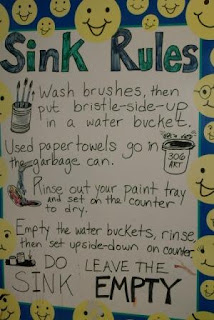 Sink Rules
Wash brushes, then
put bristle-side-up
in a water bucket.
Used paper towels go in
the garbage can.
306
ART
Rinse out your paint tray
and set on the counter
to dry.
Empty the water buckets, rinse,
then set upside-down on counter.
DO LEAVE THE
SINK EMPTY